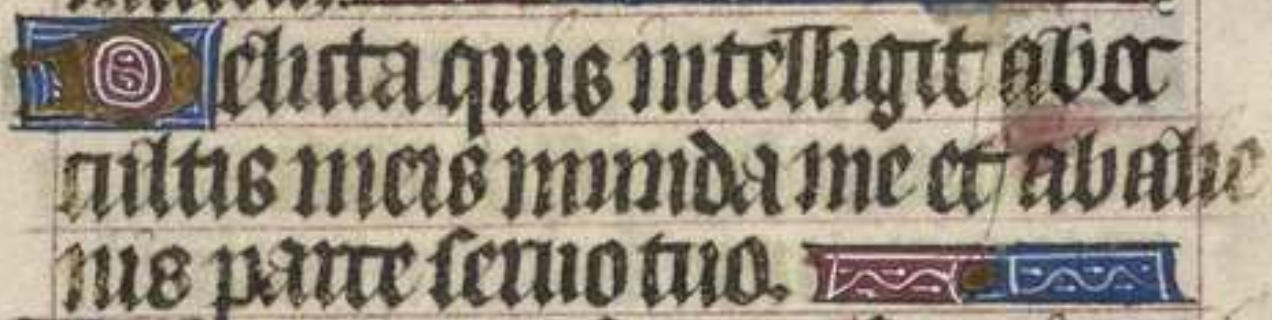 Delicta quis intelligit ab oc
cultis meis munda me et ab alie
nis parce servo tuo.